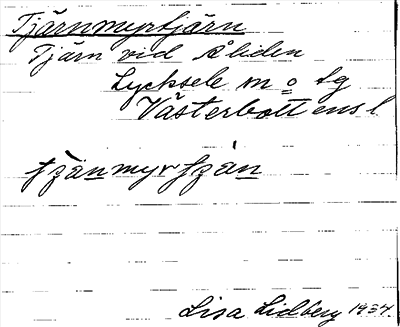 Tjärnmyrtjärn
Tjärn vid Åliden
Lycksele m o lg
Västerbottens l
Lisa Lidberg 1934.